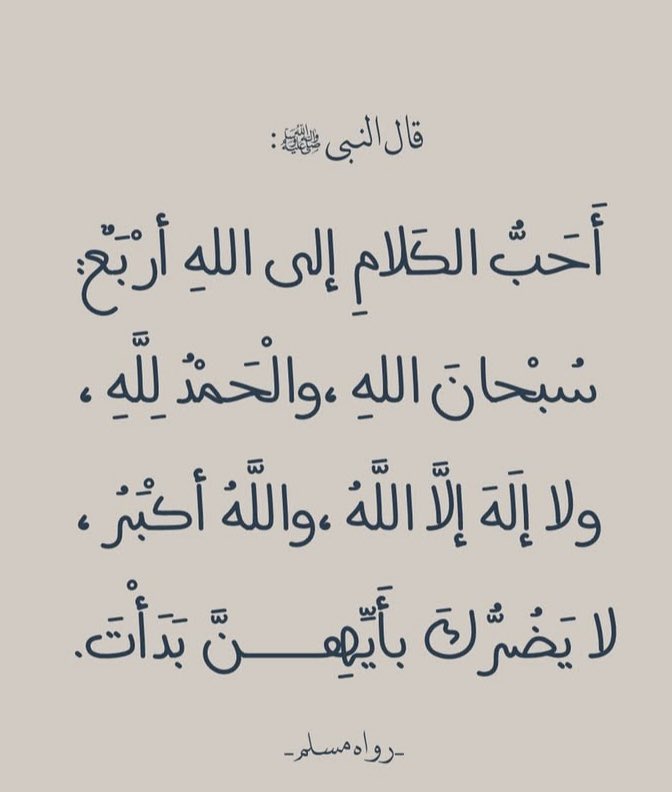 قال النبي ﷺ :
أَحَبُّ الكَلامِ إلى اللهِ أرْبَعٌ:
سُبْحانَ اللهِ ،والْحَمْدُ لِلَّهِ ،
ولا إلَهَ إلَّا اللَّهُ ،واللَّهُ أكْبَرُ ،
لا يَضُرُّكَ بأَيِّهِـــــنَّ بَدَأْتَ.
-رواه مسلم-